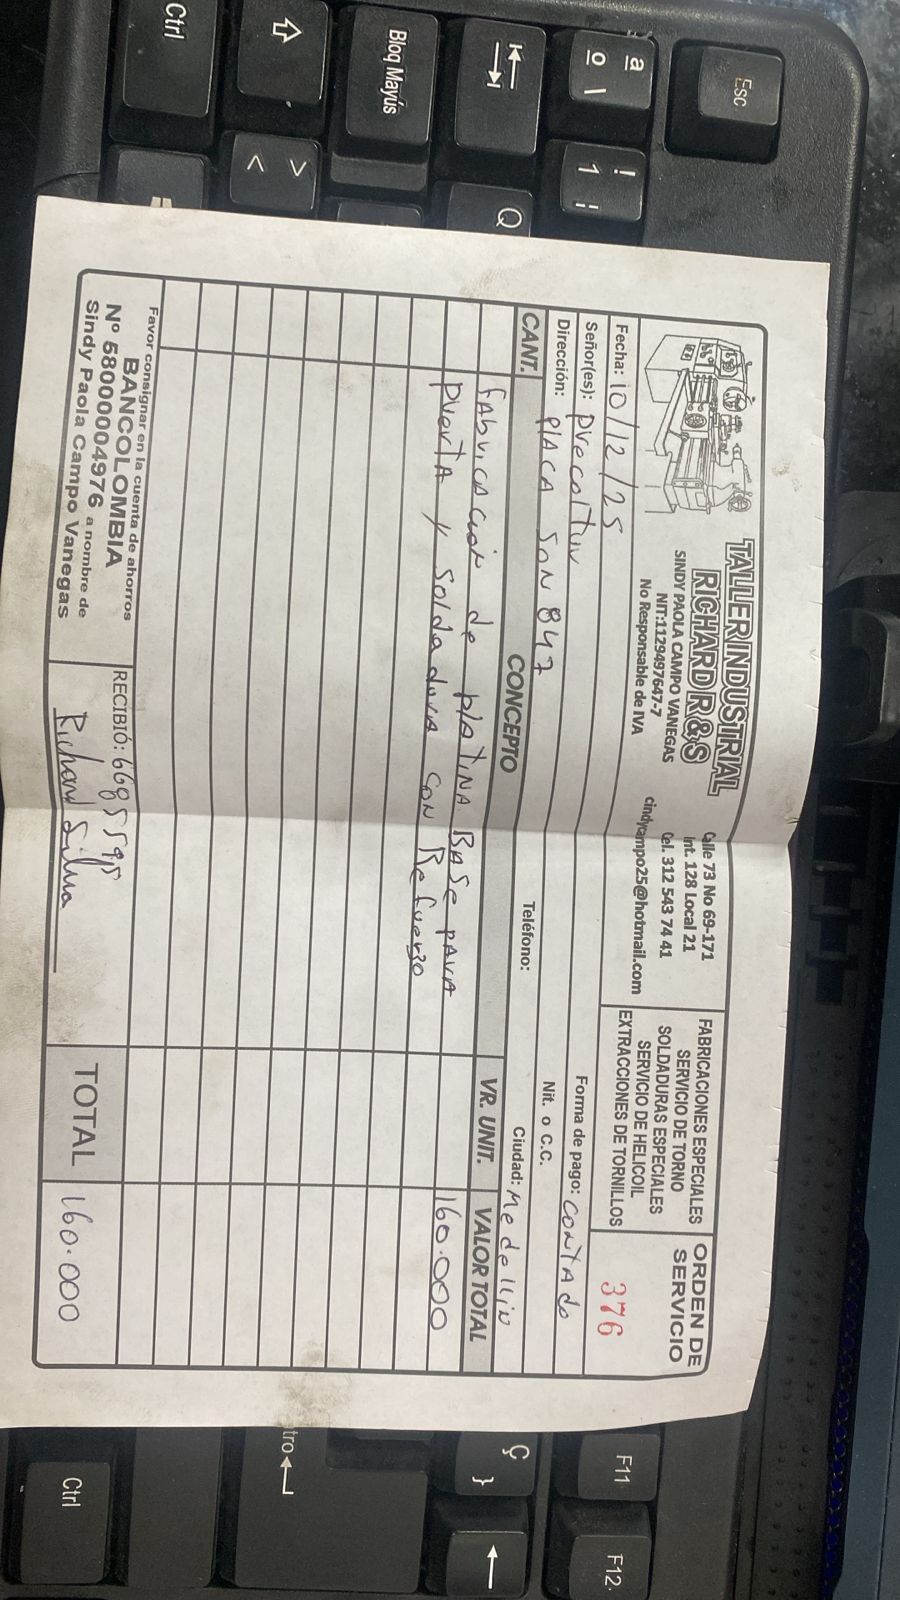 TALLER INDUSTRIAL
RICHARD R & S
SINDY PAOLA CAMPO VANEGAS
NIT:1129497647-7
No Responsable de IVA
Calle 73 No 69-171
Int. 128 Local 21
Cel. 312 543 74 41
cindycampo25@hotmail.com
FABRICACIONES ESPECIALES
SERVICIO DE TORNO
SOLDADURAS ESPECIALES
SERVICIO DE HELICOIL
EXTRACCIONES DE TORNILLOS
ORDEN DE
SERVICIO
376
Fecha: 10/12/25
Forma de pago: CONTADO
Señor(es): precoltur
Nit. o C.C.
Dirección: PLACA SON 847
Teléfono:
Ciudad: Medellin
CANT. CONCEPTO VR. UNIT. VALOR TOTAL
fABricAcion de plATiNA BASe pArA
puertA y soldadura coN Refuerzo 160.000
Favor consignar en la cuenta de ahorros
BANCOLOMBIA
Nº 58000004976 a nombre de
Sindy Paola Campo Vanegas
RECIBIÓ: 6685595
Richard Silva
TOTAL 160.000
Esc
ª º \
! 1 ¡
Q
Bloq Mayús
> <
Ctrl
F11
F12
Ç }
tro
Ctrl